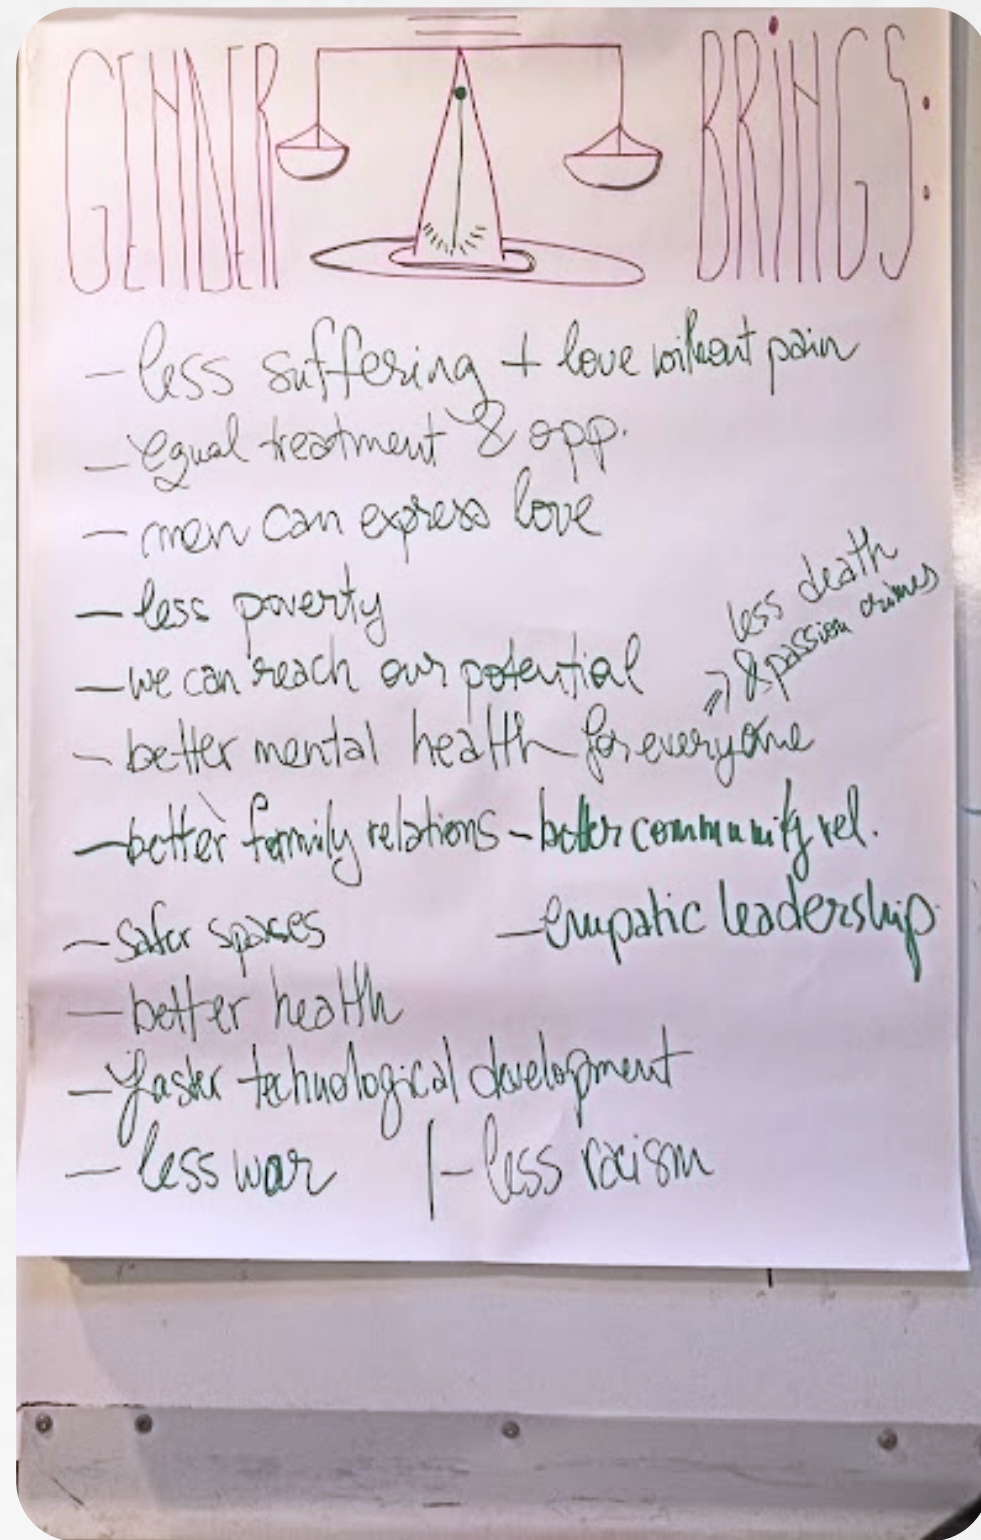 GENDER BRiNGS:
- less suffering + love without pain
- equal treatment & opp.
- men can express love
- less poverty
- we can reach our potential
less death
& passion crimes
- better mental health for everyone
- better family relations - better community rel.
- safer spases
- empatic leadership
- better health
- faster technological development
- less war |- less racism